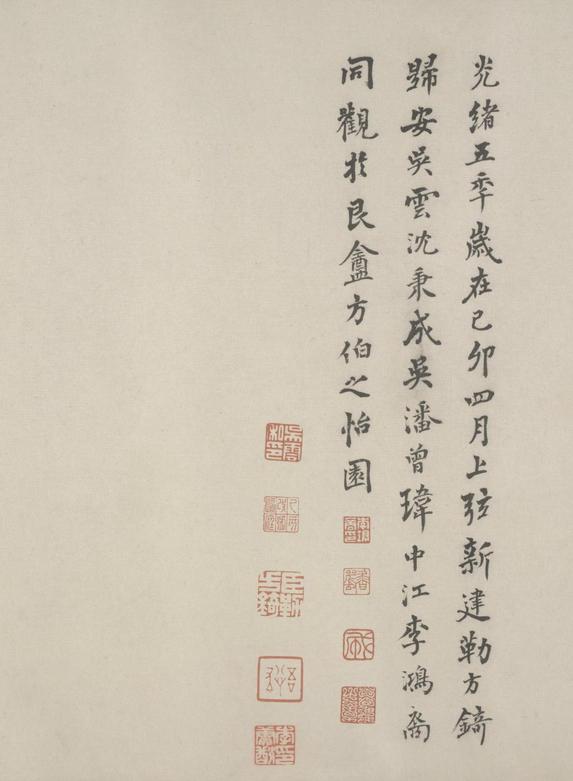 光緒五季歲在己卯四月上弦新建勒方錡
歸安吳雲沈秉成吳潘曾瑋中江李鴻裔
同觀於艮盦方伯之怡園